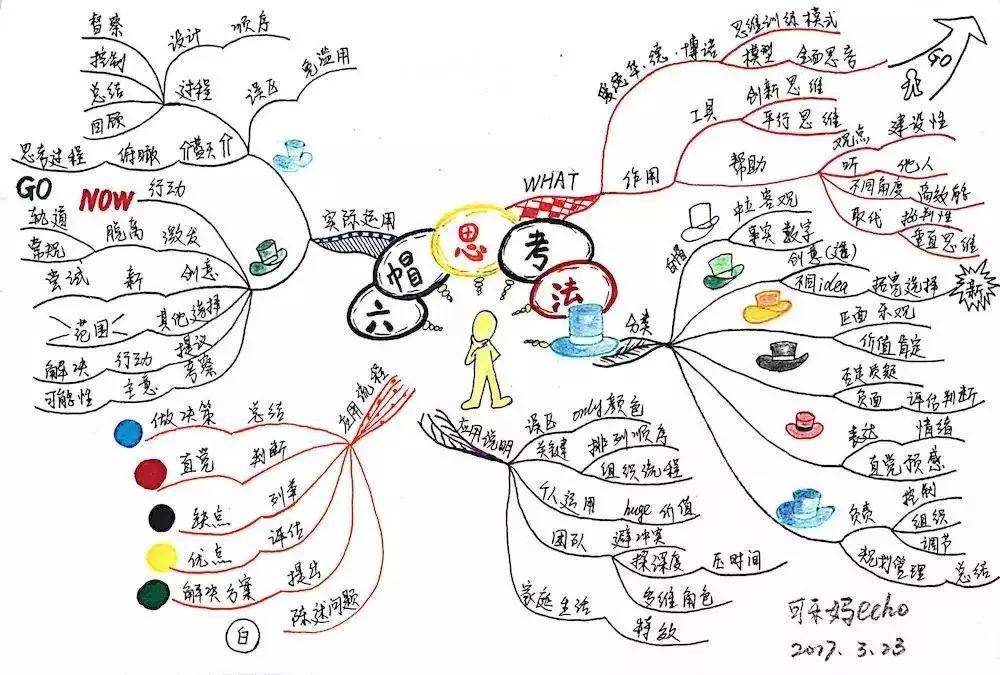 六
帽
思
考
法
WHAT
爱德华·德·博诺
思维训练模式
模型 全面思考
作用
工具
创新思维
平行思维
帮助
观点 建设性
听 他人
不同角度 高效解
取代 批判性
垂直思维
GO
分类
白帽
中立客观
事实 数字
创意(造)
不同idea 拓宽选择
新
正面 乐观
价值肯定
否定质疑
负面 评估判断
表达 情绪
直觉预感
负责 控制
组织
调节
规划管理 总结
应用说明
误区 only颜色
关键 排列顺序
组织流程
个人运用 huge价值
团队 避冲突
探深度 压时间
多维角色
家庭生活 特效
应用流程
陈述问题
白
提出 解决方案
评估 优点
列举 缺点
判断 直觉
总结 做决策
实际运用
误区 免滥用
过程
设计 顺序
督察
控制
总结
回顾
思考过程 俯瞰
GO
NOW
行动
激发 脱离 轨道
常规
创意 新 尝试
其他选择 范围
提议 行动 解决
考察 主意 可能性
可乐妈echo
2017.3.23